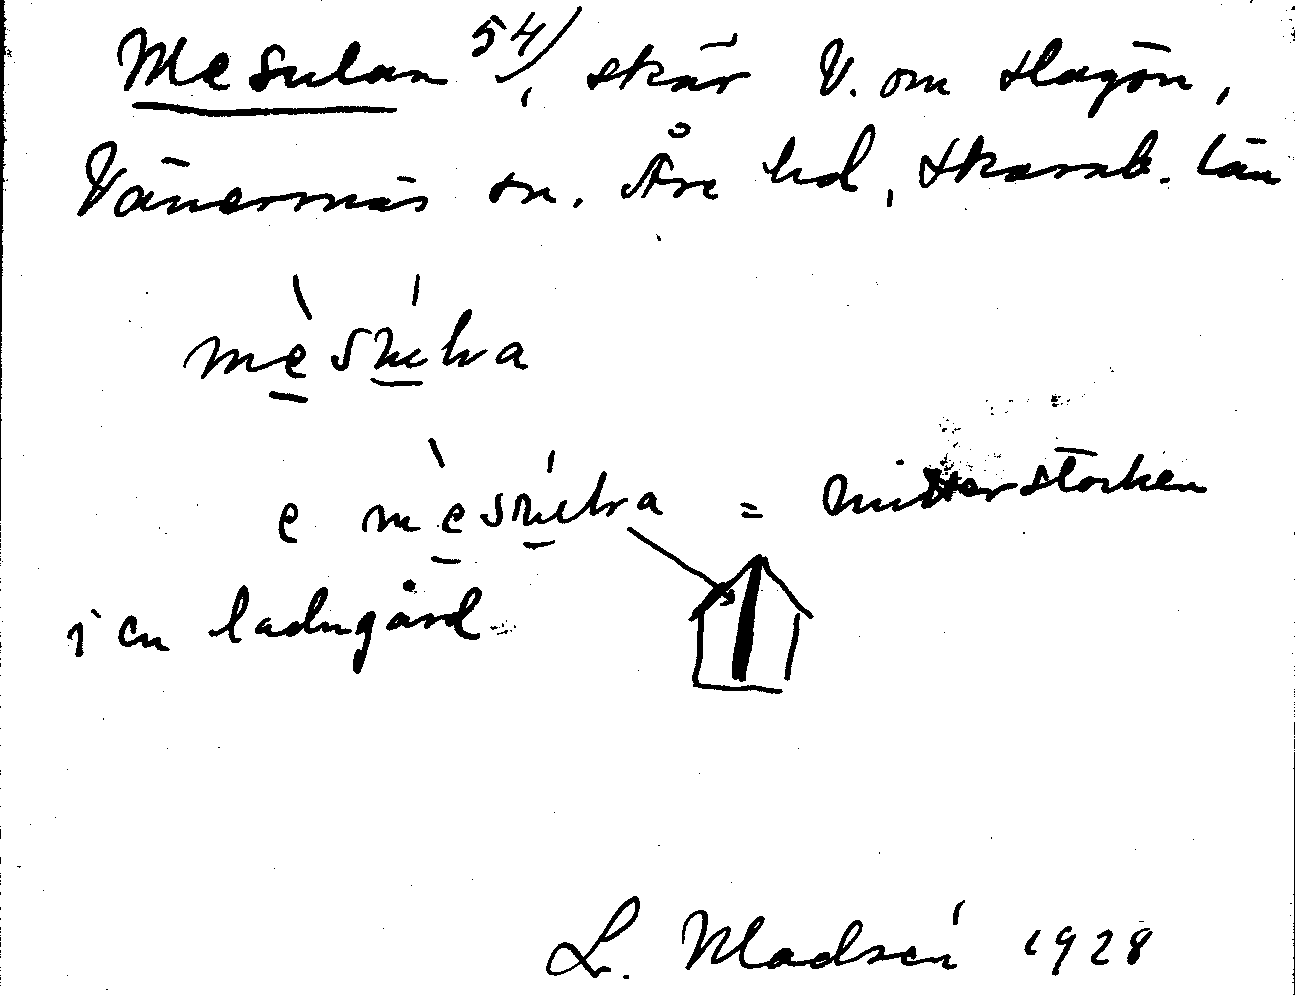 Mesulan 54/, skär V. om Hagön,
Vänersnäs sn. Åse hd, Skarab. län
mèsúlra
e mèsúlra = mitterstocken
i en ladugård
L. Madsén 1928